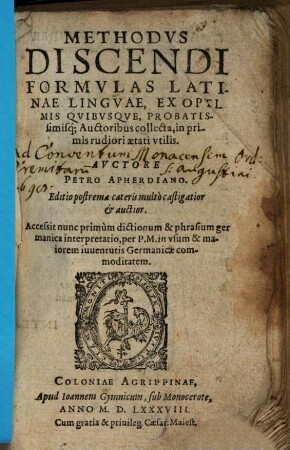 METHODVS
DISCENDI
FORMVLAS LATI-
NAE LINGVAE, EX OPTI-
MIS QVIBVSQVE, PROBATIS-
simisq́; Auctoribus collecta, in pri
mis rudiori ætati vtilis.
Ad Conventum Monacensem Ord:
Eremitarum S. Augustini
AVCTORE
PETRO APHERDIANO.
Editio postrema cæteris multò castigatior
& auctior.
Accessit nunc primùm dictionum & phrasium ger
manica interpretatio, per P. M. in vsum & ma
iorem iuuentutis Germanicæ com-
moditatem.
COLONIAE AGRIPPINAE,
Apud Ioannem Gymnicum, sub Monocerote,
ANNO M. D. LXXXVIII.
Cum gratia & priuileg. Cæsar. Maiest.